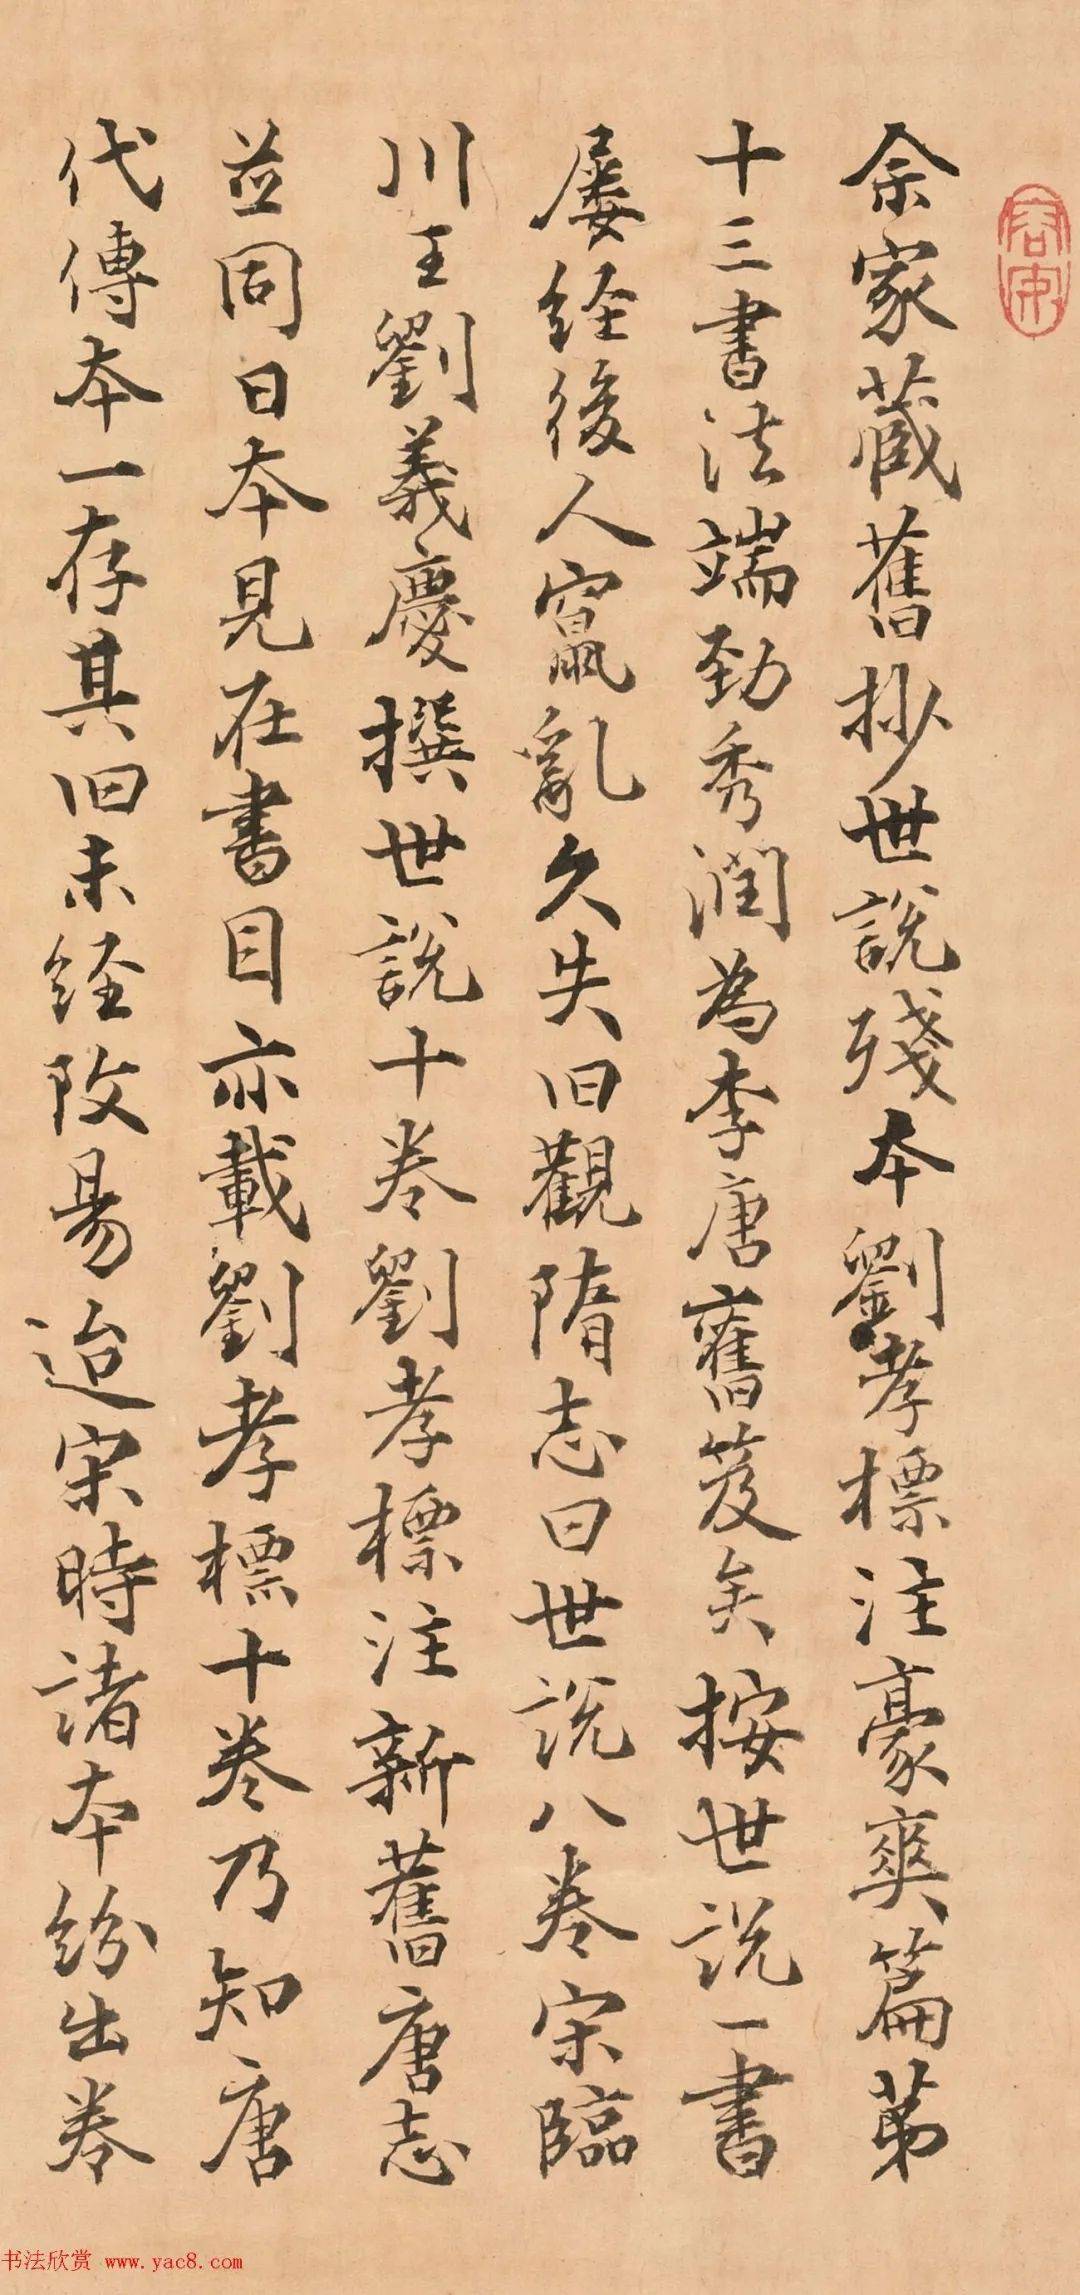 余家蔵舊抄世說殘本劉孝標注豪爽篇苐
十三書法端勁秀潤為李唐舊笈矣按世說一書
屡経後人竄亂久失旧觀隋志曰世說八卷宋臨
川王劉義慶撰世說十卷劉孝標注新舊唐志
並同日本見在書目亦載劉孝標十卷乃知唐
代傳本一存其旧未経改易迨宋時諸本紛出卷
书法欣赏 www.yac8.com